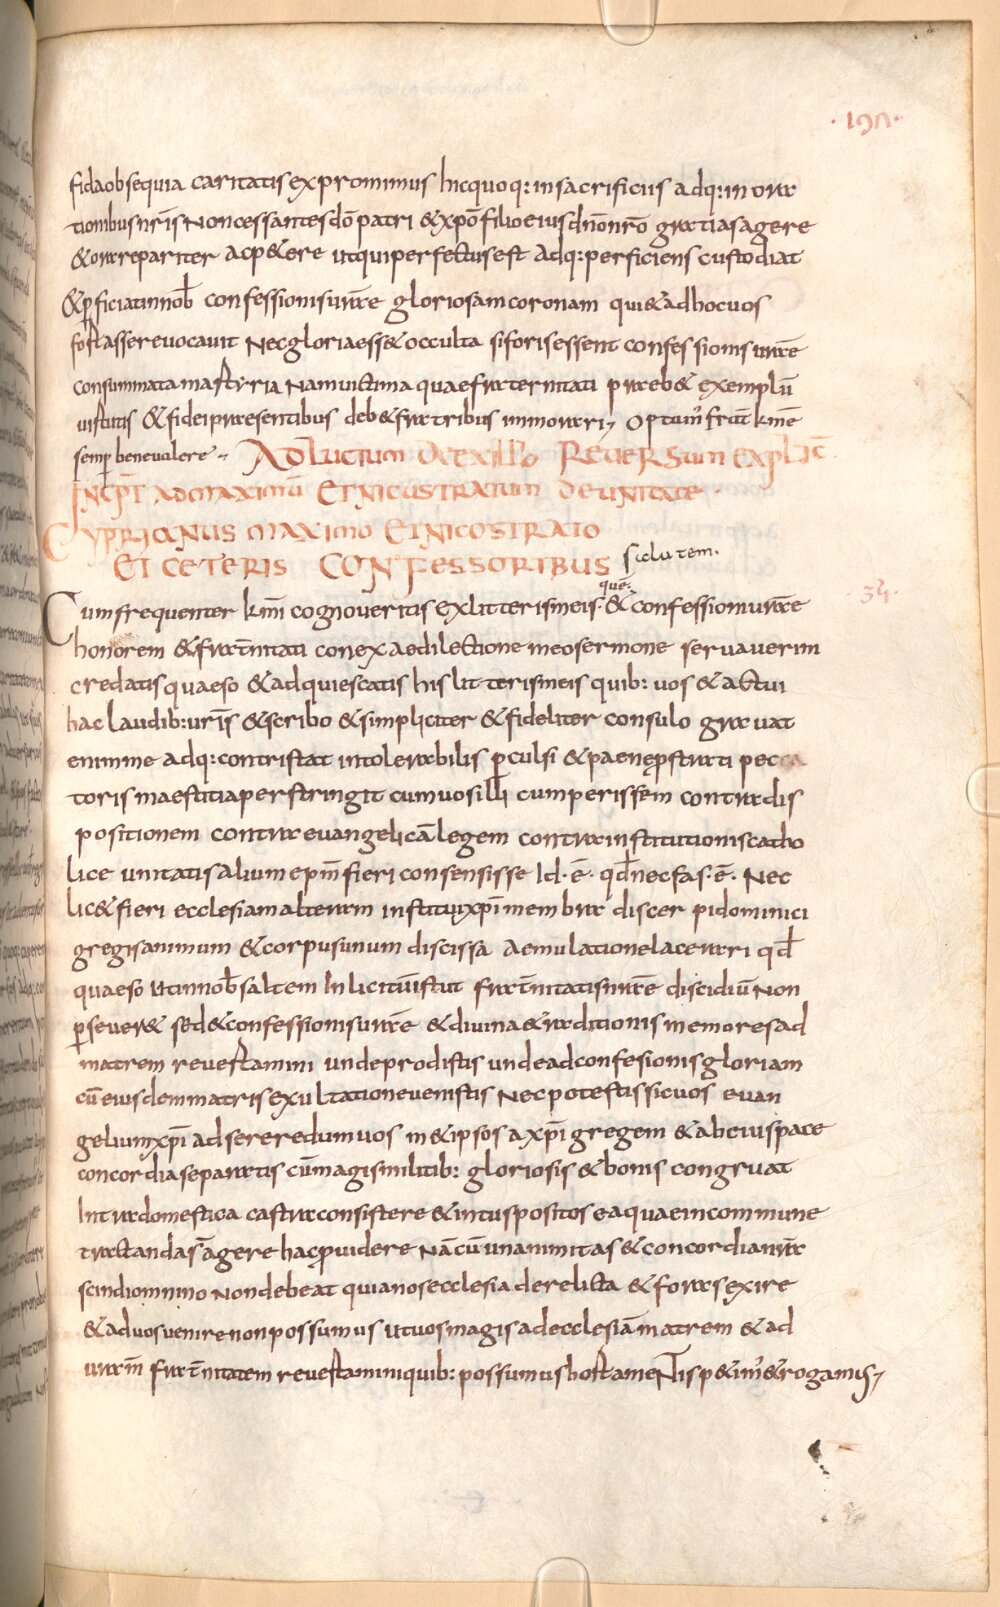 ·190·
fida obsequia caritatis expromimus hic quoq: in sacrificiis adq: in ora
tionibus nr̄is non cessantes dō patri & xpō filio eius dn̄o nr̄o gratias agere
& orare pariter ac p&ere ut qui perfectus est adq: perficiens custodiat
& ꝑficiat in nob̄ confessionis uirae gloriosam coronam qui & ad hoc uos
fortasse reuocauit nec gloria ess& occulta si foris essent confessionis urae
consummata martyria nam uictima quae fraternitati praeb& exemplū
uirtutis & fidei praesentibus deb& fratribus immolari; optam' frat̄ km̄e
semꝑ bene ualere ad Lucium de exilio reuersum explic̄
Incp̄t ad maximū et nicustratum de unitate ·
Cyprianus maximo et nicostrato
et ceteris confessoribus salutem.
Cum frequenter km̄i cognoueritis ex litteris meis que: & confessioni urae
34
honorem & frat̄nitati conexae dilectione meo sermone seruauerim
credatis quaeso & adquiescatis his litteris meis quib: uos & actui
hac laudib: uris & scribo & simpliciter & fideliter consulo grauat
enim me adq: contristat intolerabilis ꝑculsi & paene ꝓstrati pecca
toris maestitia perstringit cum uos illi cum perissem contra dis
positionem contra euangelicā legem contra institutionis catho
lice unitatis alium ep̄m fieri consensisse Id·ē· qd̄ nec fas·ē· Nec
lic& fieri ecclesiam alteram institui xp̄i membra discerpi dominici
gregis animum & corpus unum discissa aemulatione lacerari qd̄
quaeso ut in nob̄ saltem Inlicitū istut frat̄nitatis nrae discidiū non
ꝑseuer& sed & confessionis urae & diuina & raditionis memores ad
matrem reuertamini unde prodistis unde ad confesionis gloriam
cū eiusdem matris exultatione uenistis Nec potestis sic uos euan
gelium xp̄i adserere dum uos m& ipsos a xp̄i gregem & ab eius pace
concordia separatis cū magis militib: gloriosis & bonis congruat
Intra domestica castra consistere & intus positos ea quae in commune
tractanda s̄ agere hac ꝓuidere Nā cū unanimitas & concordia nra
scindi omnino non debeat quia nos ecclesia derelicta & foras exire
& ad uos uenire non possumus ut uos magis ad ecclesiā matrem & ad
uram̄ frat̄nitatem reuertamini quib: possumus hortamentis p&im' & rogamus;